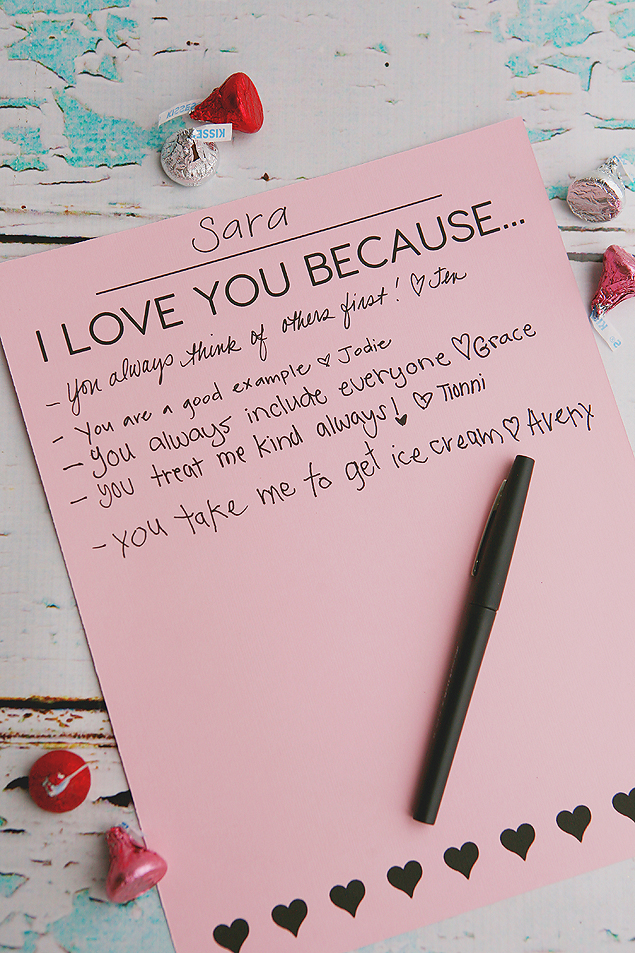 KISSES
KISSES
Sara
I LOVE YOU BECAUSE...
- You always think of others first! ♡ Jen
- You are a good example ♡ Jodie
- You always include everyone ♡ Grace
- you treat me kind always! ♡ Tionni
- you take me to get ice cream ♡ Avery